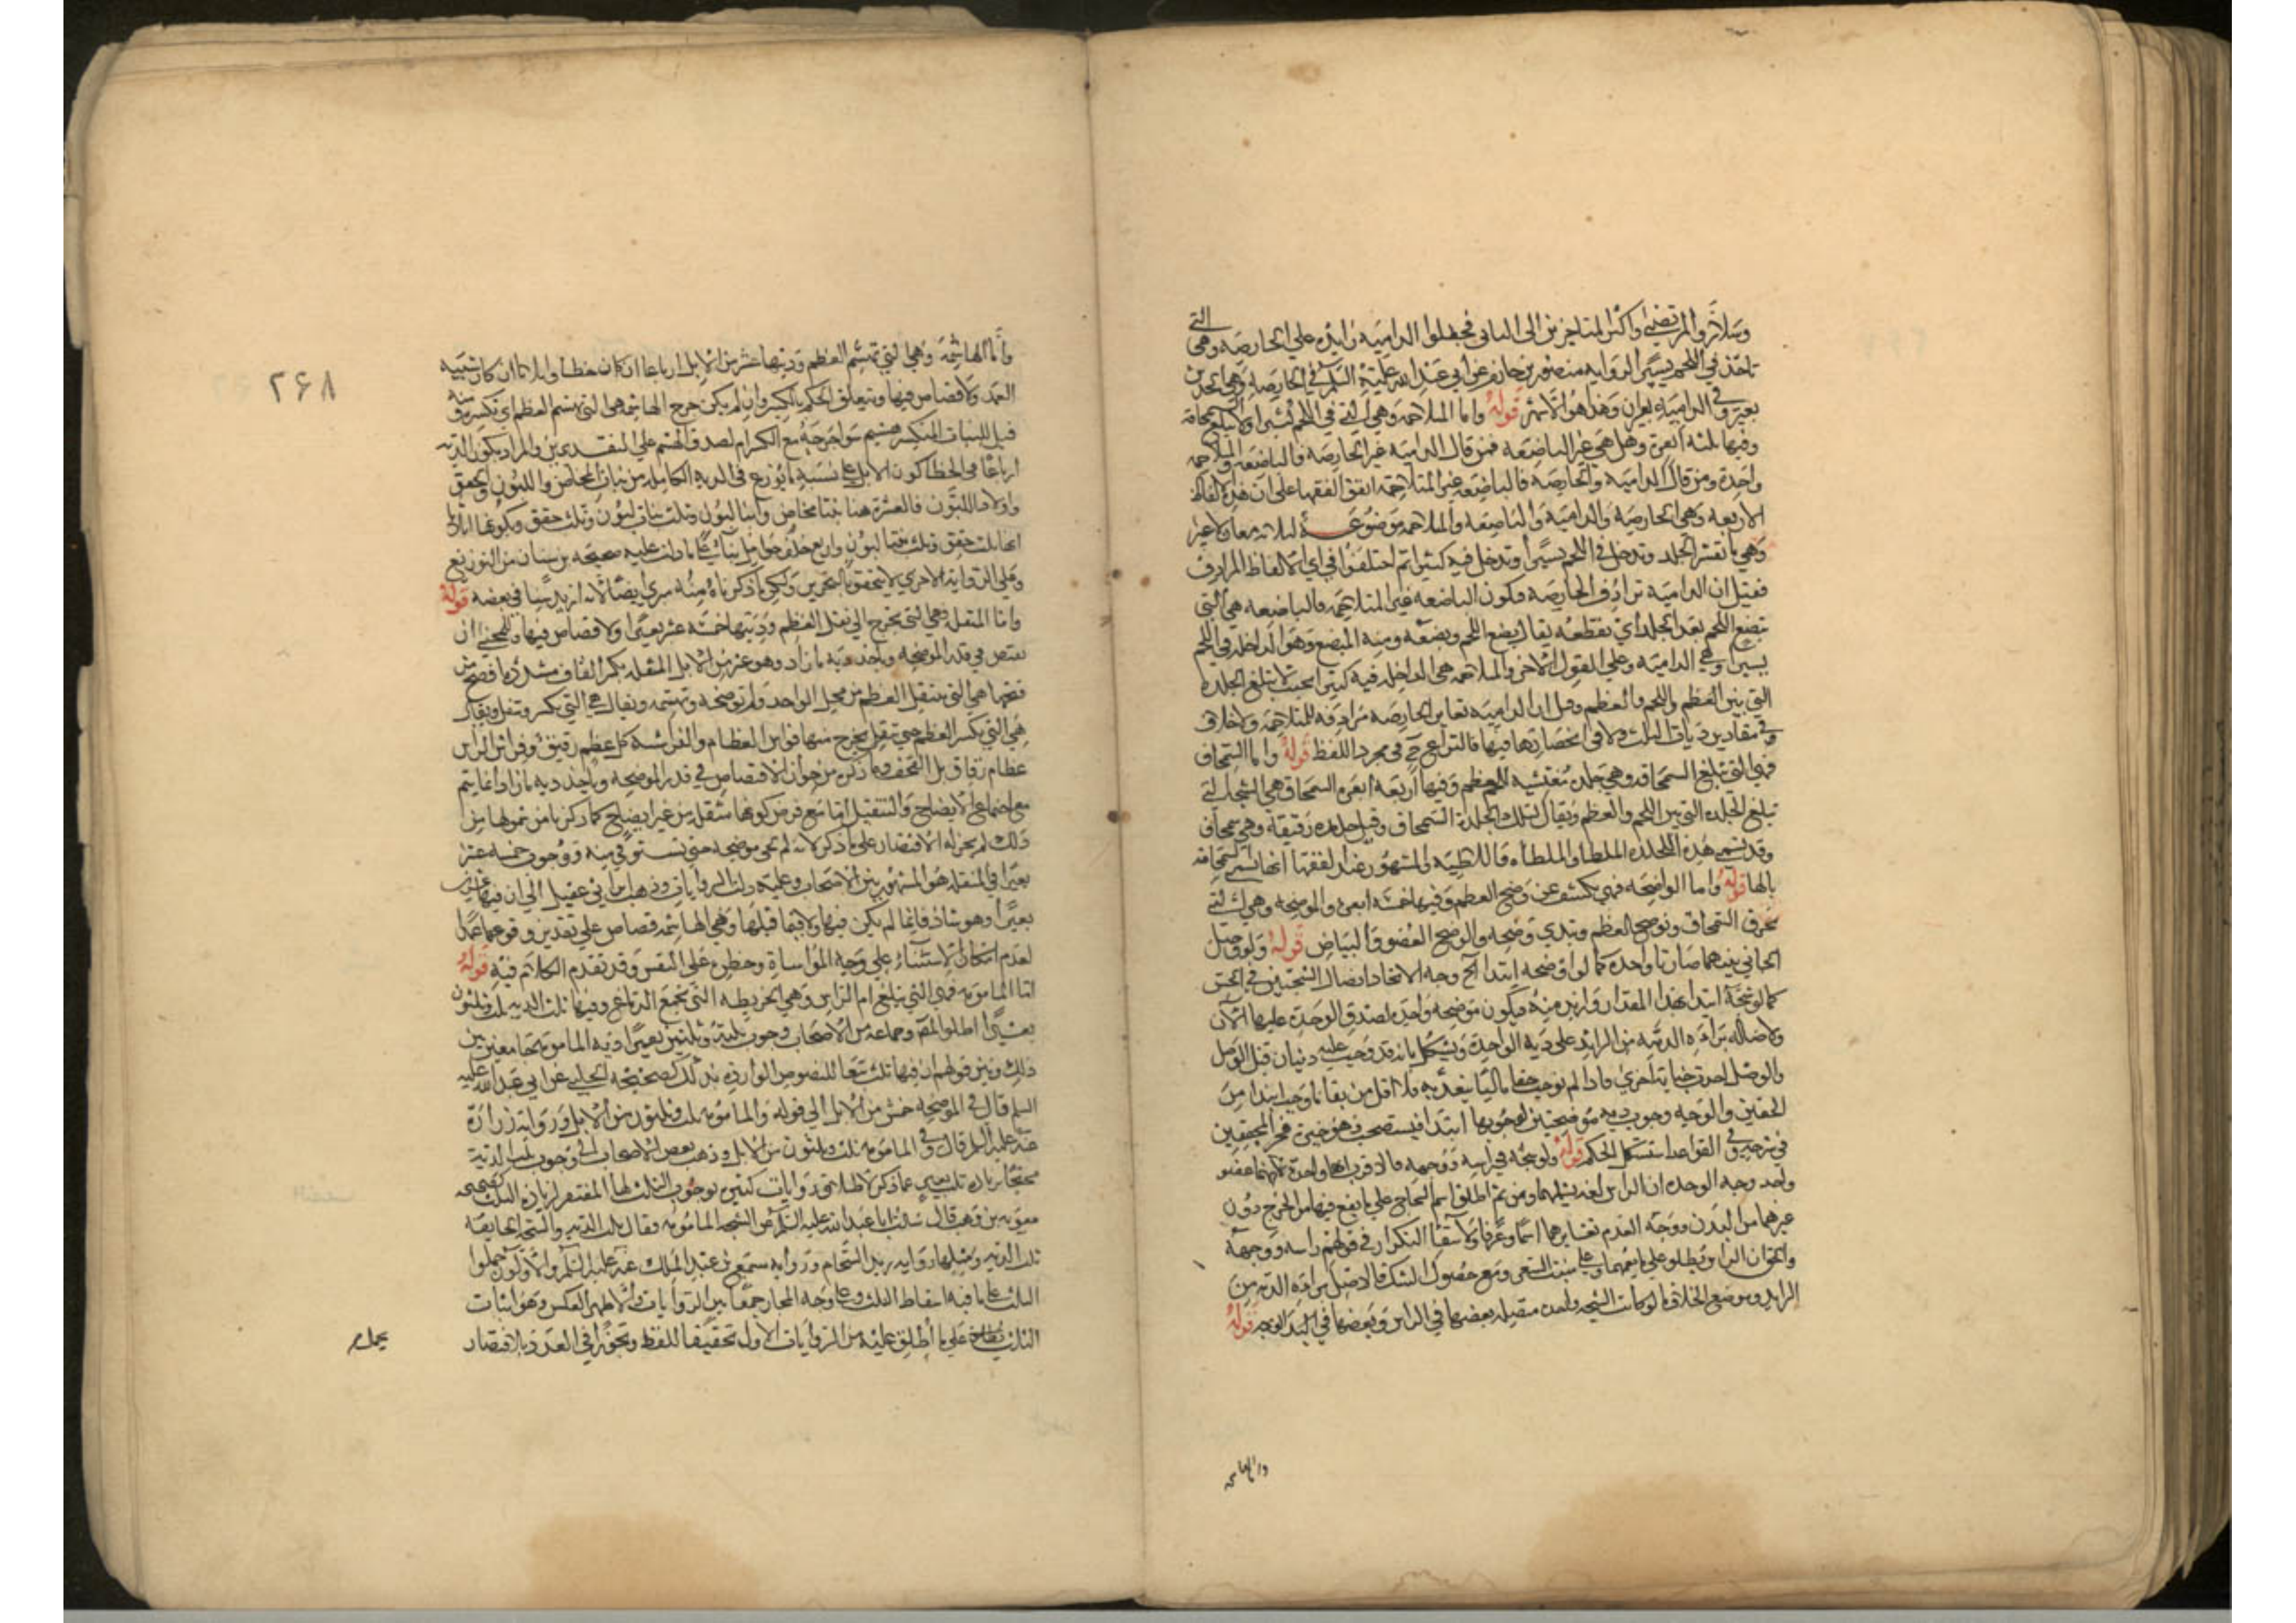 وسلار والمرتضى واكثر المتاخرين الى الثانى فجعلوا الداميه زايده على الحارصه وهى التى
تاخذ فى اللحم يسيرا لروايه منصور بن حازم عن ابى عبد الله عليه السلم فى الحارصه وهى الخدش
بعير وفى الداميه بعيران وهذا هو الاشهر قوله واما المتلاحمه وهى التى تاخذ فى اللحم كثيرا ولا تبلغ سمحاقه
وفيها ثلثه ابعره وهل هى غير الباضعه فمن قال الداميه غير الحارصه فالباضعه والمتلاحمه
واحدة ومن قال الداميه والحارصه فالباضعه غير المتلاحمه اتفق الفقهاء على ان هذه الالفاظ
الاربعه وهى الحارصه والداميه والباضعه والمتلاحمه موضوعة لثلاثه معان لا غير
وهى ما تقشر الجلد وتدخل فى اللحم يسيرا وتدخل فيه كثيرا ثم اختلفوا فى اى الالفاظ المرادف
فقيل ان الداميه ترادف الحارصه فتكون الباضعه غير المتلاحمه فالباضعه هى التى
تبضع اللحم بعد الجلد اى تقطعه يقال بضع اللحم وبضعه ومنه المبضع وهو الداخله فى اللحم
يسيرا وهى الداميه وعلى القول الاخر والمتلاحمه هى الداخله فيه كثيرا بحيث لا تبلغ الجلدة
التى بين العظم واللحم والعظم وقيل ان الداميه تغاير الحارصه مرادفه للمتلاحمه ولا خلاف
فى مقادير ديات الثلث ولا فى انحصارها فيها فالنزاع ح فى مجرد اللفظ قوله واما السمحاق
فهى التى تبلغ السمحاقه وهى جلده مغشيه للعظم وفيها اربعه ابعره السمحاق هى الشجه التى
تبلغ الجلده التى بين اللحم والعظم ويقال لتلك الجلدة السمحاق وقيل جلده رقيقة وهى سمحاق
وقد تسمى هذه الجلده الملطا والملطاه فاللاطيه والمشهور عند الفقها انها تسمى سمحاقه
بالها قوله واما الواضحه فهى تكشف عن وضح العظم وفيها خمسه ابعره والموضحه وهى التى
تخرق السمحاق وتوضح العظم وتبدى وضحه والوضح الضوو والبياض قوله ولو وصل
الجانى بينهما صارتا واحده كما لو اوضحه ابتدا آخ وجه الاتحاد اتصال الشجتين فى الحس
كما لو شجه ابتدا بهذا المقدار وازيد منه فيكون موضحه واحده لصدق الوحدة عليها الآن
ولاصاله براءه الذمه من الزايد على ديه الواحدة ويشكل بانه قد وجب عليه ديتان قبل الوصل
والوصل احدث جناية اخرى فاذا لم يوجب حقا ماليا بتعديه فلا اقل من بقا ما وجب ابتدا من
الحقين والوجه وجوب ديه موضحتين لوجوبها ابتدا فيستصحب
فى القواعد استشكل الحكم قوله ولو شجه فى راسه ووجهه فالاقرب انها واحدة لانهما عضو
واحد وجه الوحده ان الراس لغه يشملهما ومن ثم اطلق اسم الشجاج على ما يقع فيهما من الجرح دون
غيرهما من البدن ووجه العدم تغايرهما اسما وعرفا ولانتفا التكرار فى قولهم راسه ووجهه
والحق ان الراس يطلق على ما يعمهما وعلى منبت الشعر ومع حصول الشك فالاصل براءه الذمه من
الزايد وموضع الخلاف ما لو كانت الشجه واحده متصله بعضها فى الراس وبعضها فى الوجه قوله
واما الهاشمه
٢٦٨
واما الهاشمه وهى التى تهشم العظم وديتها عشر من الابل ارباعا ان كان خطا واثلاثا ان كان شبيه
العمد ولا قصاص فيها ويتعلق الحكم بالكسر وان لم يكن جرح الهاشمه هى التى تهشم العظم اى تكسره ومنه
قيل للنبات المنكسر هشيم سوا جرحه مع الكسر ام لا لصدق الهشم على التقديرين والمراد بكون الديه
ارباعا فى الخطا كون الابل على نسبه ما يوزع فى الديه الكامله من بنات المخاض واللبون والحقق
واولاد اللبون فالعشرة هنا بنتا مخاض وابنا لبون وثلث بنات لبون وثلث حقق وبكونها اثلاثا
انها ثلث حقق وثلث بنات لبون واربع خلف حوامل بنا على ما دلت عليه صحيحه بن سنان من التوزيع
وعلى الروايه الاخرى لا يتحقق بالتحرير ولكن ما ذكرناه مبرئ ايضا لانه ازيد سنا فى بعضه قوله
واما المنقله وهى التى تخرج الى نقل العظم وديتها خمسه عشر بعيرا ولا قصاص فيها وللمجنى ان
يقتص فى قدر الموضحه وياخذ ديه ما زاد وهو عشر من الابل المنقله بكسر القاف مشدده افصح من
فتحها هى التى تنقل العظم من محل الى اخر وان لم توضحه وتهشمه ويقال هى التى تكسر وتنقل ويقال
هى التى تكسر العظم حتى تنقل يخرج منها فراش العظام والفراشه كل عظم رقيق وفراش الراس
عظام رقاق تلى القحف وما ذكره من جواز الاقتصاص فى قدر الموضحه وياخذ ديه ما زاد انما يتم
مع اجتماع الايضاح والتنقيل اما مع فرض كونها منقله من غير ايضاح كما ذكرنا من شمولها من
ذلك لم يجز له الاقتصار على ما ذكر لانه لم يجن موضحه حتى تستوفى منه ووجوب خمسه عشر
بعيرا فى المنقله هو المشهور بين الاصحاب وعليه دلت الروايات وذهب ابن ابى عقيل الى ان فيها عشرين
بعيرا وهو شاذ وانما لم يكن فيها ولا فيما قبلها وهى الهاشمه قصاص على تقدير وقوعها عمدا
لعدم امكان الاستيفاء على وجه المواساة وخطره على النفس وقد تقدم الكلام فيه قوله
اما المامومه فهى التى تبلغ ام الراس وهى الخريطه التى تجمع الدماغ وفيها ثلث الديه ثلث وثلثون
بعيرا اطلق المص وجماعه من الاصحاب وجوب ثلثه وثلثين بعيرا فى ديه المامومه جامعين بين
ذلك وبين قولهم ان فيها ثلث تبعا للنصوص الوارده بذلك كصحيحه الحلبى عن ابى عبد الله عليه
السلم قال فى الموضحه خمس من الابل الى قوله والمامومه ثلث وثلثون من الابل وروايه زرارة
عنه عليه السلم قال فى المامومه ثلث وثلثون من الابل وذهب بعض الاصحاب الى وجوب ثلث الديه
محتجا بزياده ثلث بعير عما ذكر لاطلاق روايات كثيره بوجوب الثلث لها المقتضى لزيادة الثلث كصحيحه
معويه بن وهب قال سالت ابا عبد الله عليه السلم عن الشجه المامومه فقال ثلث الديه والشجه الجايفه
ثلث الديه ومثلها روايه زيد الشحام وروايه مسمع بن عبد الملك عنه عليه السلم والاولون حملوا
الثلث على ما فيه اسقاط الثلث وعلى وجه المجاز جمعا بين الروايات والاظهر العكس وهو اثبات
الثلث على ما اطلق عليه من الروايات الاول تحقيقا للفظ وتجوزا فى العدد بالاقتصار